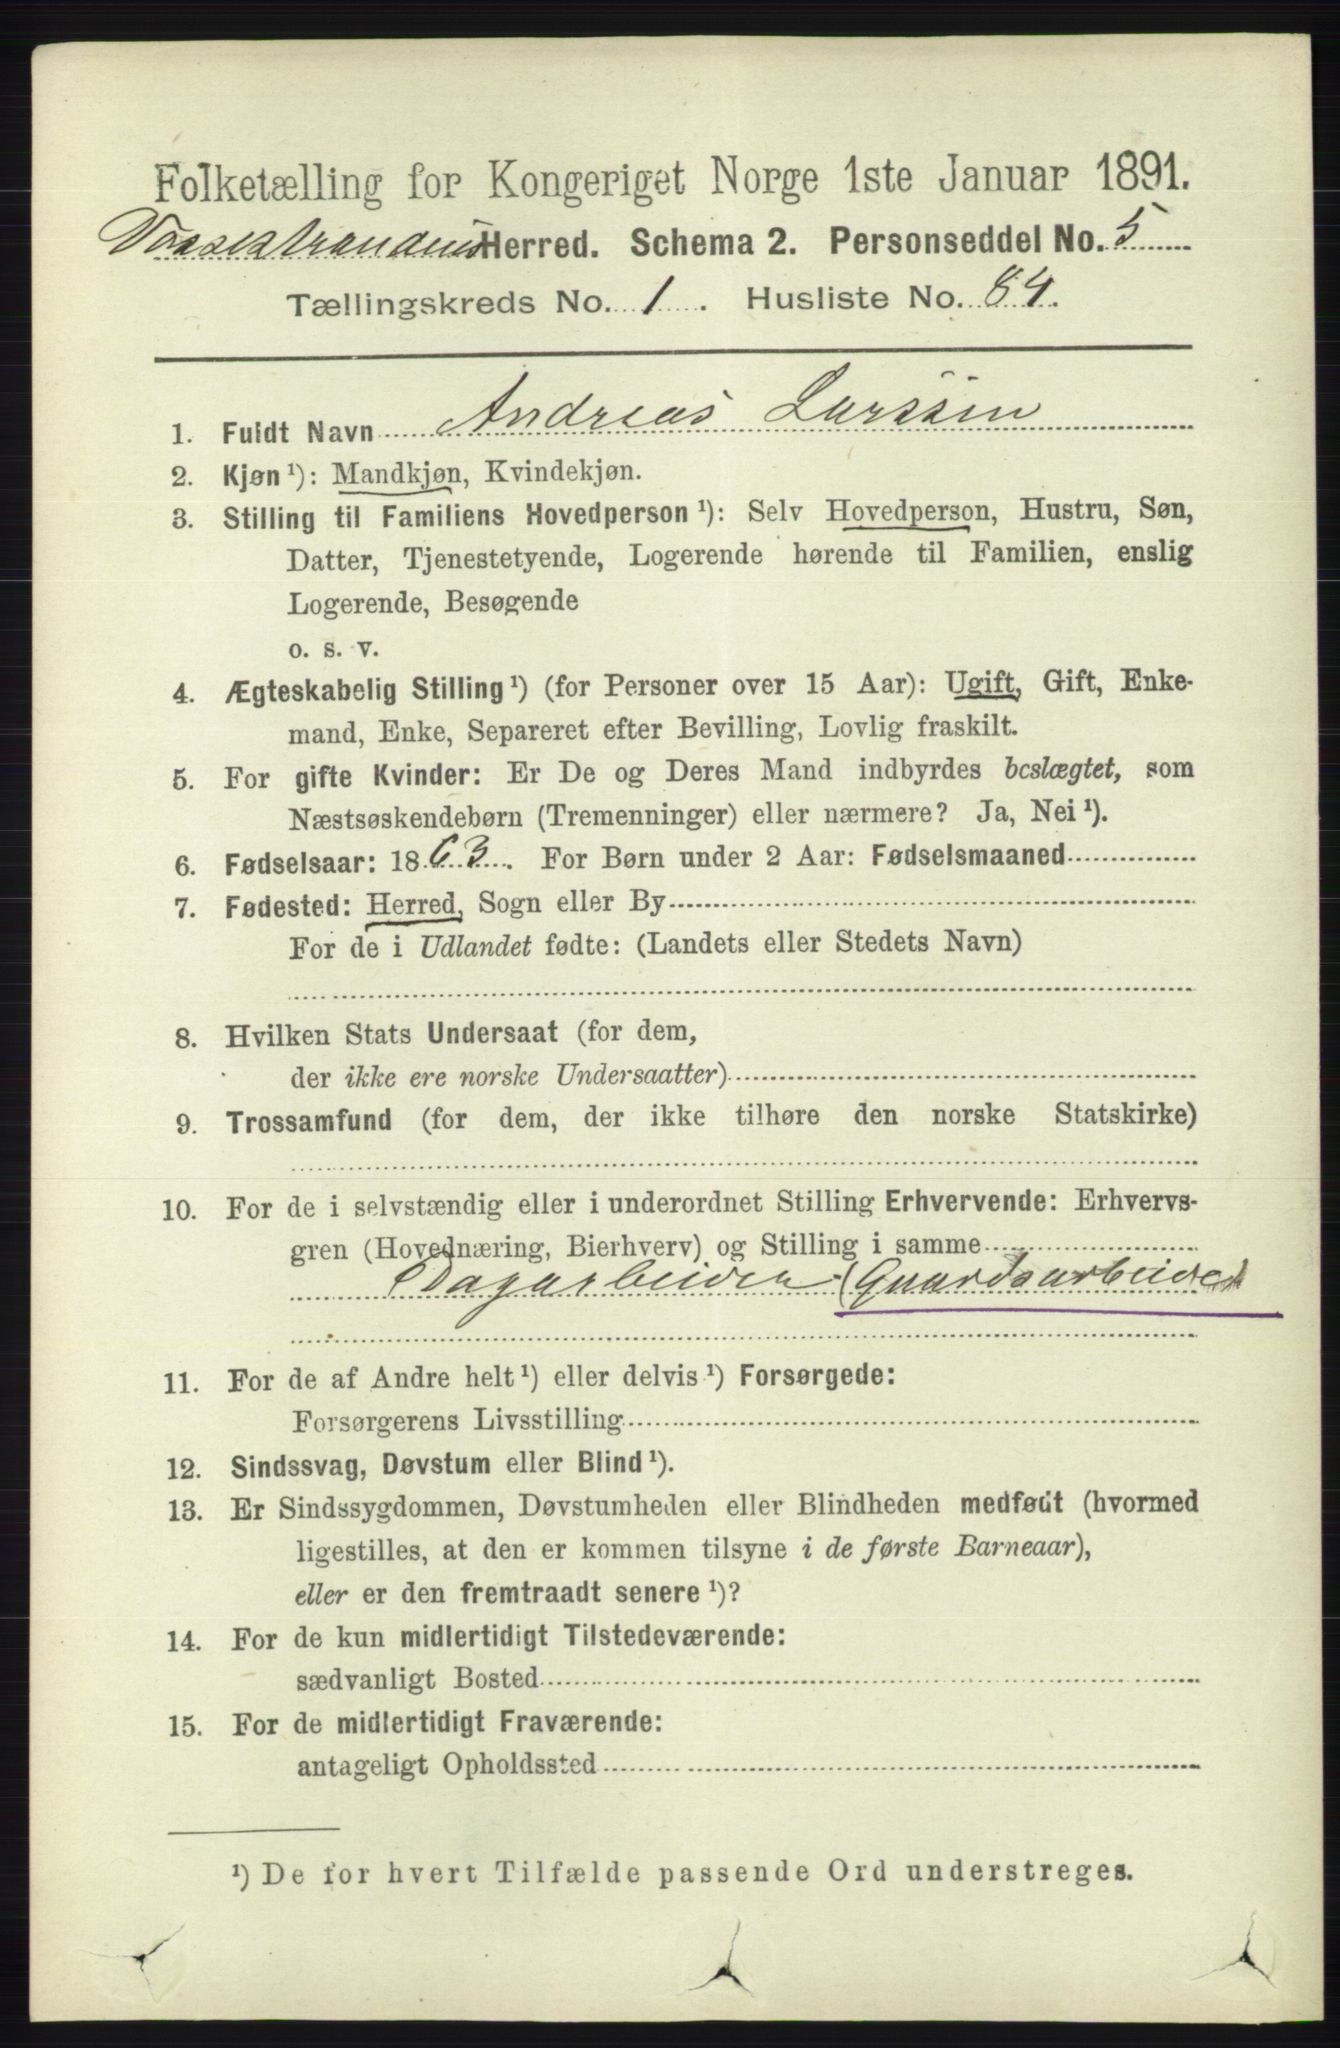 Folketælling for Kongeriget Norge 1ste Januar 1891.
Vossestrandens Herred. Schema 2. Personseddel No. 5
Tællingskreds No. 1. Husliste No. 84.
1. Fuldt Navn Andreas Larssen
2. Kjøn ¹): Mandkjøn, Kvindekjøn.
3. Stilling til Familiens Hovedperson ¹): Selv Hovedperson, Hustru, Søn,
Datter, Tjenestetyende, Logerende hørende til Familien, enslig
Logerende, Besøgende
o. s. v.
4. Ægteskabelig Stilling ¹) (for Personer over 15 Aar): Ugift, Gift, Enke-
mand, Enke, Separeret efter Bevilling, Lovlig fraskilt.
5. For gifte Kvinder: Er De og Deres Mand indbyrdes beslægtet, som
Næstsøskendebørn (Tremenninger) eller nærmere? Ja, Nei ¹).
6. Fødselsaar: 1863. For Børn under 2 Aar: Fødselsmaaned
7. Fødested: Herred, Sogn eller By
For de i Udlandet fødte: (Landets eller Stedets Navn)
8. Hvilken Stats Undersaat (for dem,
der ikke ere norske Undersaatter)
9. Trossamfund (for dem, der ikke tilhøre den norske Statskirke)
10. For de i selvstændig eller i underordnet Stilling Erhvervende: Erhvervs-
gren (Hovednæring, Bierhverv) og Stilling i samme
Dagarbeider (Gaardsarbeider
11. For de af Andre helt ¹) eller delvis ¹) Forsørgede:
Forsørgerens Livsstilling
12. Sindssvag, Døvstum eller Blind ¹).
13. Er Sindssygdommen, Døvstumheden eller Blindheden medfødt (hvormed
ligestilles, at den er kommen tilsyne i de første Barneaar),
eller er den fremtraadt senere ¹)?
14. For de kun midlertidigt Tilstedeværende:
sædvanligt Bosted
15. For de midlertidigt Fraværende:
antageligt Opholdssted
¹) De for hvert Tilfælde passende Ord understreges.